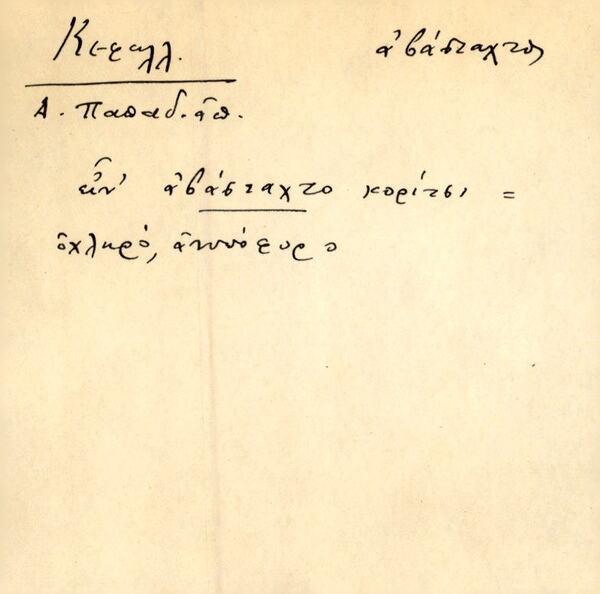 Κεφαλλ. ἀβάσταχτος
Α. Παπαδ.
εἶν' ἀβάσταχτο κορίτσι =
ὀχληρό, ἀνυπόφορο